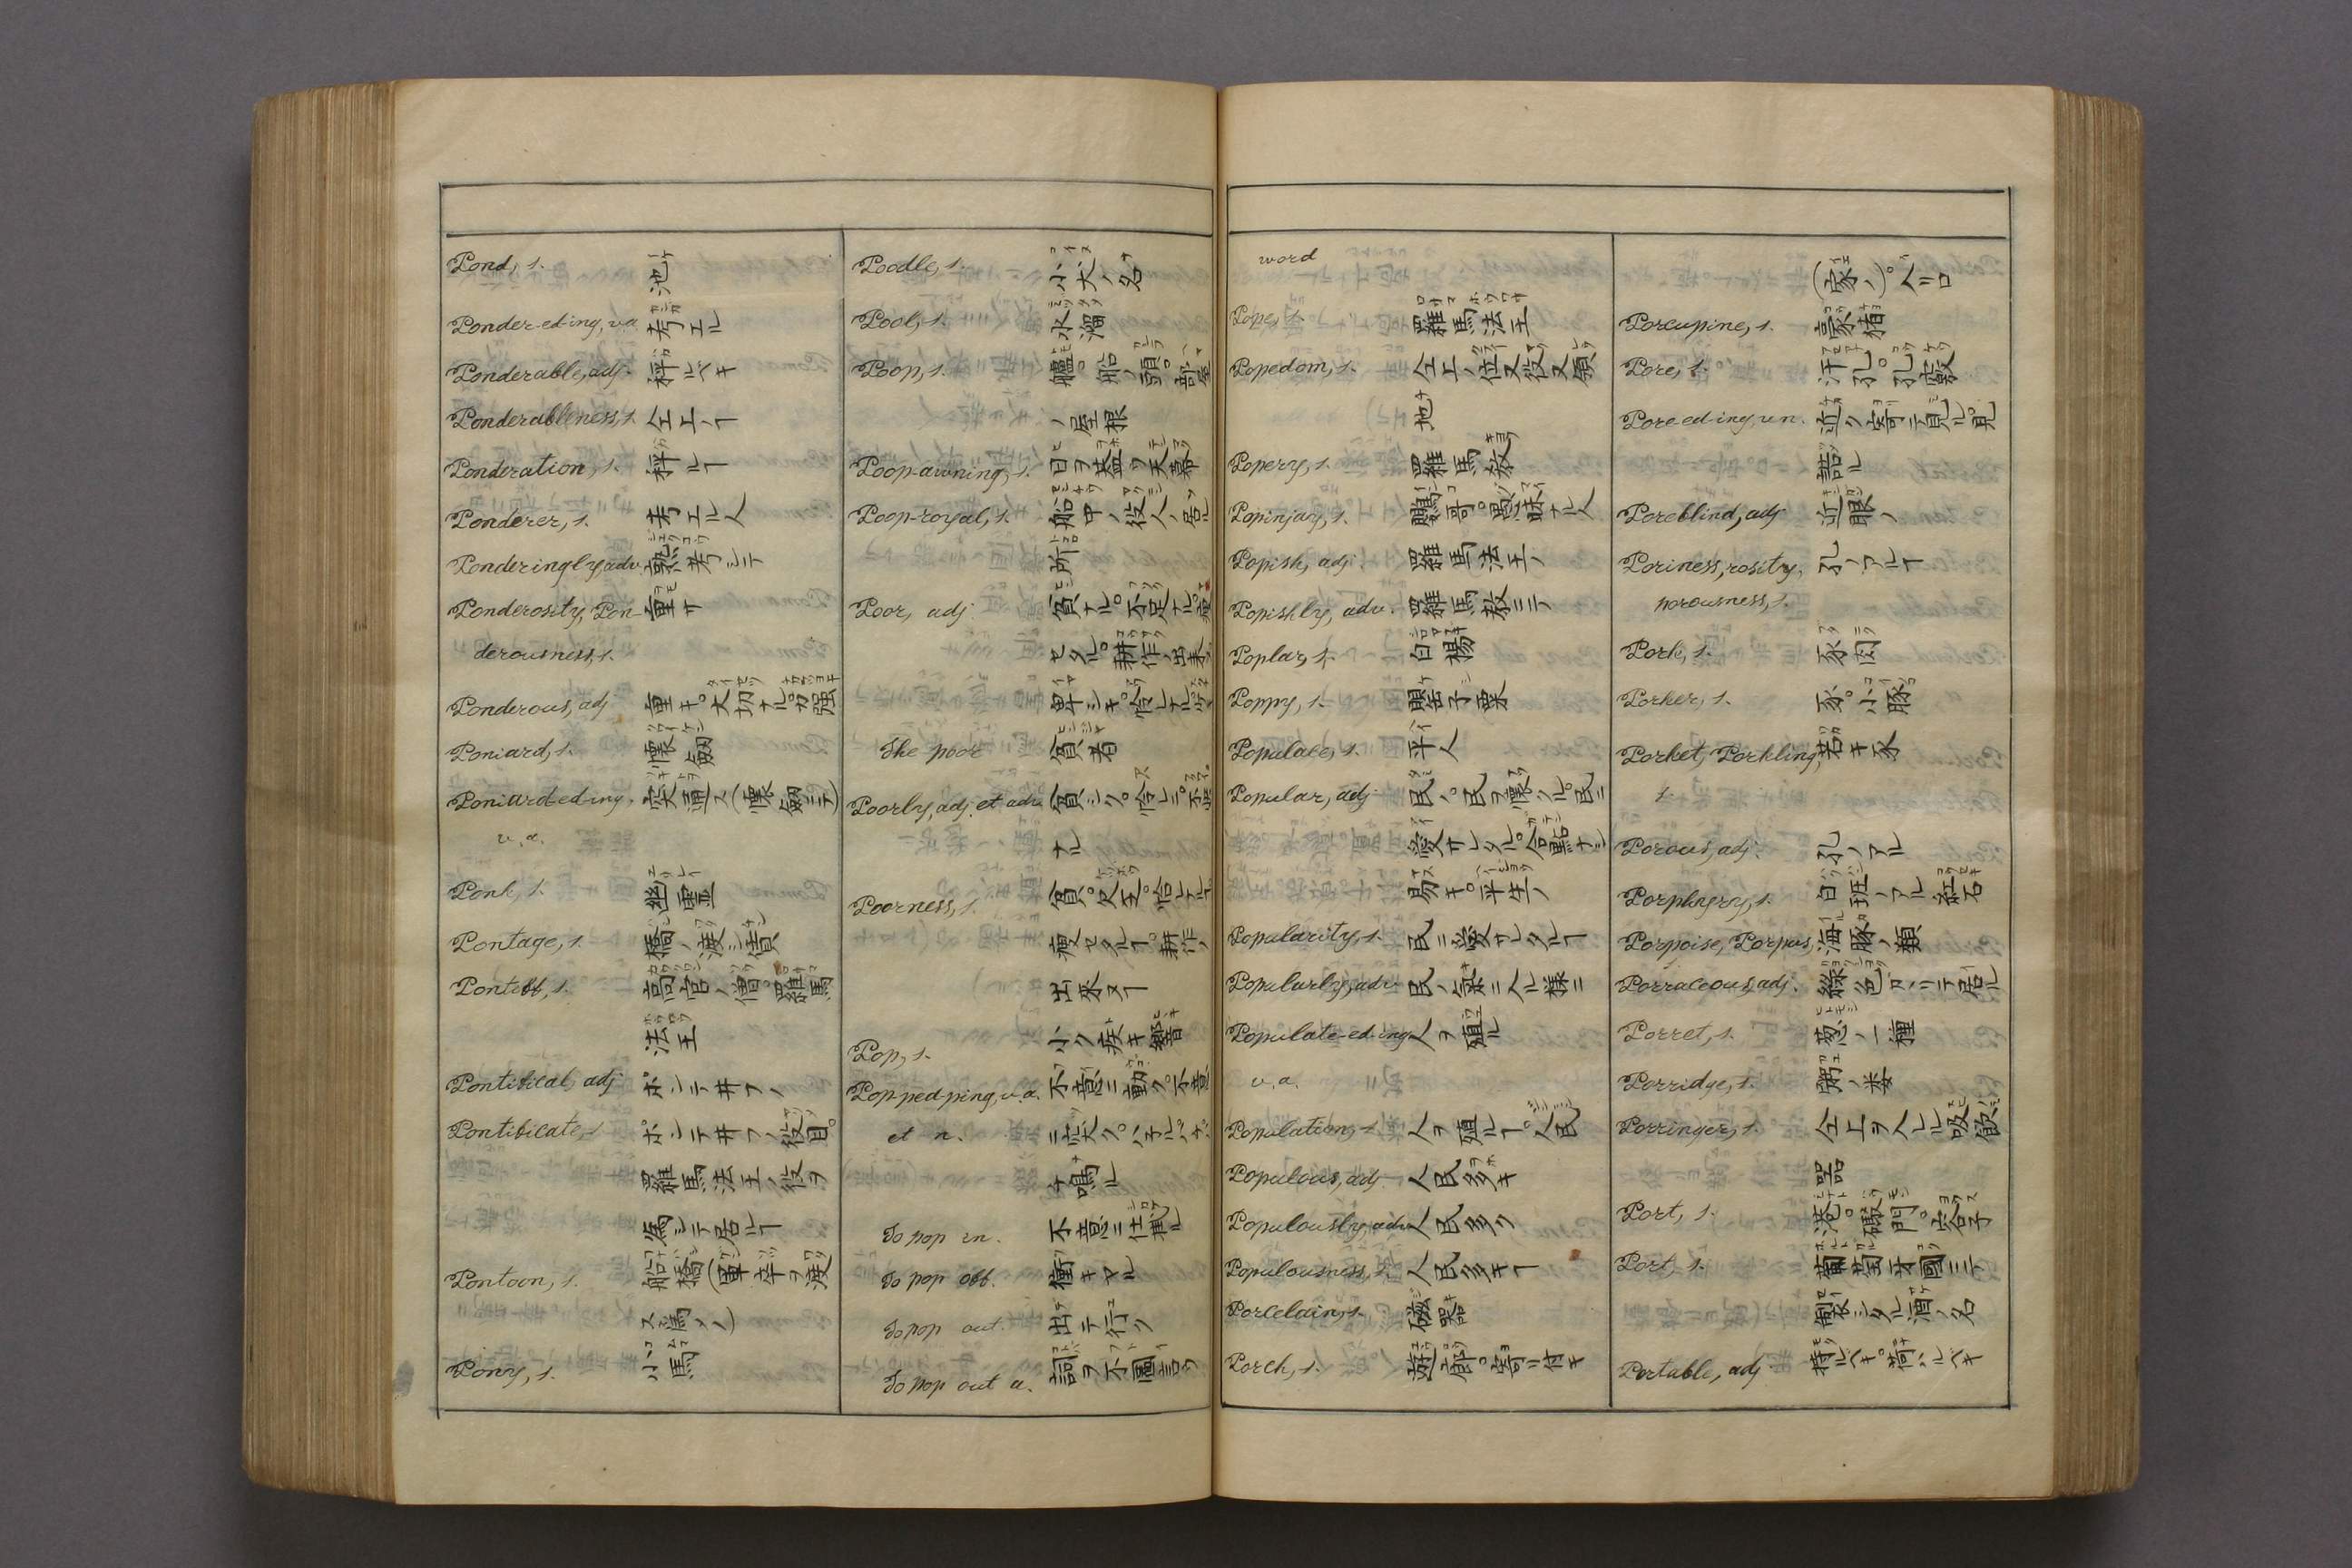 Pond, s. 池
Ponder-ed-ing, v.a. 考エル
Ponderable, adj. 秤ルベキ
Ponderableness, s. 仝上ノヿ
Ponderation, s. 秤ルヿ
Ponderer, s. 考エル人
Ponderingly, adv. 熟考シテ
Ponderosity, Pon- 重サ
derousness, s.
Ponderous, adj 重キ。大切ナル。力強
Poniard, s. 懐劔
Poniard-ed-ing, 突通ス(懐劔ニテ)
v.a.
Ponk, s. 幽霊
Pontage, s. 橋ノ渡シ賃
Pontiff, s. 高官ノ僧。羅馬
法王
Pontifical, adj ポンテ井フノ
Pontificate, s ポンテ井フノ役目。
羅馬法王ノ役ヲ
為シテ居ルヿ
Pontoon, s. 船橋(軍卒ヲ渡
ス為メノ)
Pony, s. 小馬
Poodle, s. 小犬ノ名
Pool, s. 水溜
Poop, s. 艫。船ノ頭。部屋
ノ屋根
Poop-awning, s. 日ヲ蓋ク天幕
Poop-royal, s. 船中ノ役人ノ居ル
所
Poor, adj. 貧ナル。不足ナル。
セタル。耕作ノ出来
卑シキ。
The poor 貧者
Poorly, adj. et adv. 貧シク。
ナル
Poorness, s. 貧。欠乏。
瘦セタルヿ。耕作ノ
出来ヌヿ
Pop, s. 小ク疾キ響音
Pop-ped-ping, v.a. 不意ニ動ク。不意
et n. ニ突ク。
チ鳴ル
To pop in. 不意ニ仕
To pop off. 衝キヤル
To pop out. 出テ行ク
To pop out a. 詞ヲ不圖言フ
word
Pope, s. 羅馬法王
Popedom, s. 仝上ノ位又役又領
地
Popery, s. 羅馬教
Popinjay, s. 鸚哥。愚昧ナル人
Popish, adj. 羅馬法王ノ
Popishly, adv. 羅馬教ニテ
Poplar, s. 白楊
Poppy, s. 罌子粟
Populace, s. 平人
Popular, adj 民ノ。民ヲ懐クル。民ニ
愛サレタル。合點ナシ
易キ。平生ノ
Popularity, s. 民ニ愛サレタルヿ
Popularly, adv 民ノ氣ニ入ル様ニ
Populate-ed-ing 人ヲ殖ル
v.a.
Population, s 人ヲ殖ルヿ。人民
Populous, adj 人民多キ
Populously, adv 人民多ク
Populousness, s. 人民多キヿ
Porcelain, s. 磁器
Porch, s. 遊廊。寄リ付キ
(家ノ)。入リ口
Porcupine, s. 豪猪
Pore, s. 汗孔。孔竅
Pore-ed-ing, v.n. 近ク寄テ見ル。見
詰ル
Poreblind, adj 近眼ノ
Poriness, rosity, 孔ノアルヿ
porousness, s.
Pork, s. 豕肉
Porker, s. 豕。小豚
Porket, Porkling, 若キ豕
s.
Porous, adj. 孔ノアル
Porphyry, s. 白班ノアル紅石
Porpoise, Porpus, 海豚ノ類
Porraceous, adj. 綠色
Porret, s. 葱ノ一種
Porridge, s. 粥ノ
Porringer, s. 仝上ヲ入レル吸飲
器
Port, s. 港。礮門。容子
Port, s. 葡萄牙國ニテ
製シタル酒ノ名
Portable, adj 持ルベキ。荷ハルベキ